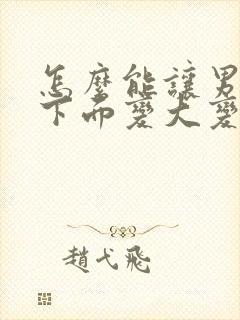 怎麼能讓男
下而變大變
趙弋飛